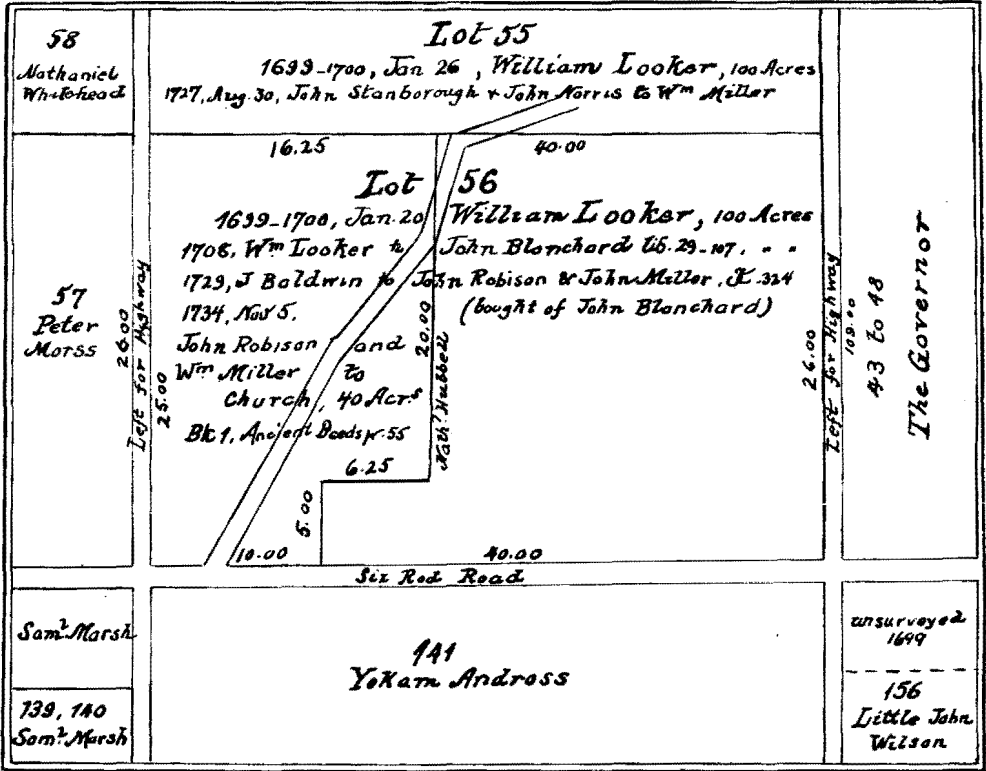 58
Nathaniel
Whitehead
Lot 55
1699-1700, Jan 26, William Looker, 100 Acres
1727, Aug. 30, John Stanborough & John Norris to Wm Miller
16.25
40.00
Lot 56
1699-1700, Jan. 20 William Looker, 100 Acres
1708. Wm Looker to John Blanchard Lib. 29-107. " "
1729, J Baldwin to John Robison & John Miller. 324
(bought of John Blanchard)
1734, Nov 5.
John Robison and
Wm Miller to
Church, 40 Acrs
Bk 1, Ancient Deeds p. 55
57
Peter
Morss
26.00
Left for Highway
25.00
20.00
Nathl Hubbell
6.25
5.00
10.00
40.00
26.00
Left for Highway
109.00
43 to 48
The Governor
Six Rod Road
Saml Marsh
139, 140
Saml Marsh
141
Yokam Andross
unsurveyed
1699
156
Little John
Wilson